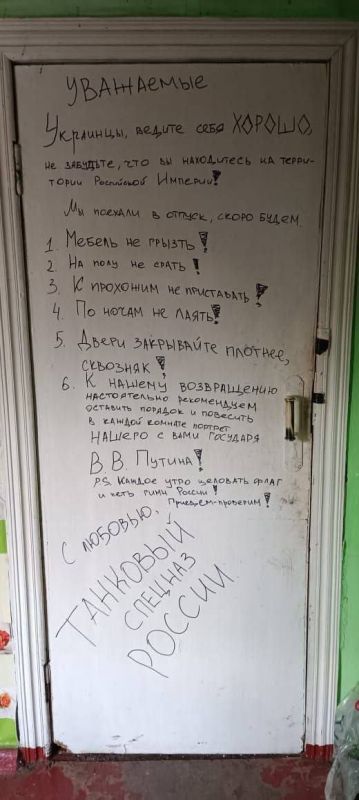 УВАЖАЕМЫЕ
Украинцы, ведите себя ХОРОШО,
не забудьте, что вы находитесь на терри-
тории Российской Империи!
Мы поехали в отпуск, скоро будем.
1. Мебель не грызть!
2. На полу не срать!
3. К прохожим не приставать!
4. По ночам не лаять!
5. Двери закрывайте плотнее,
сквозняк!
6. К нашему возвращению
настоятельно рекомендуем
оставить порядок и повесить
в каждой комнате портрет
нашего с вами государя
В.В. Путина!
PS Каждое утро целовать флаг
и петь гимн России!
Приедем-проверим!
С любовью,
ТАНКОВЫЙ
СПЕЦНАЗ
РОССИИ